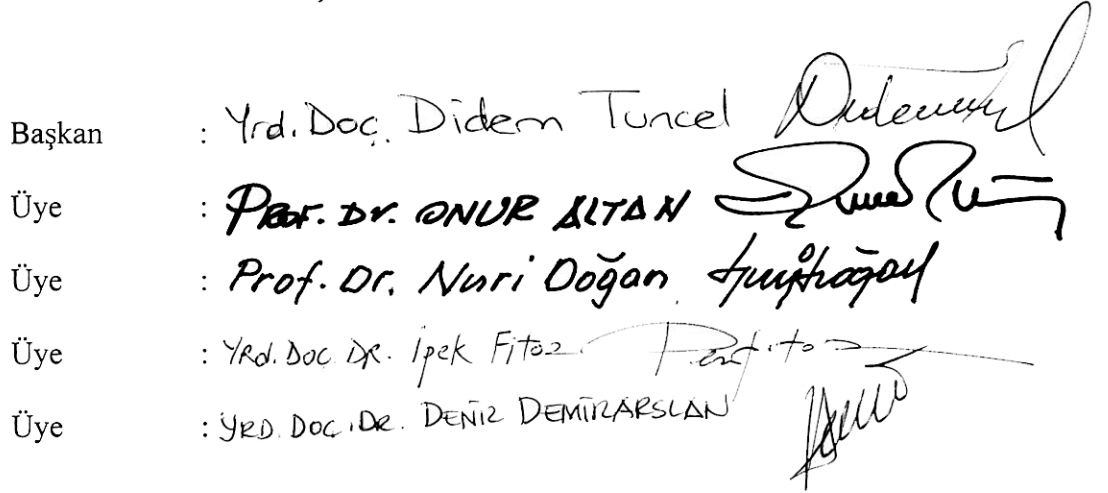 Başkan : Yrd. Doç. Didem Tuncel
Üye : PROF. Dr. ONUR ALTAN
Üye : Prof. Dr. Nuri Doğan
Üye : YRd. Doc. DR. İpek Fitoz
Üye : YRD. DOÇ. DR. DENİZ DEMİRARSLAN